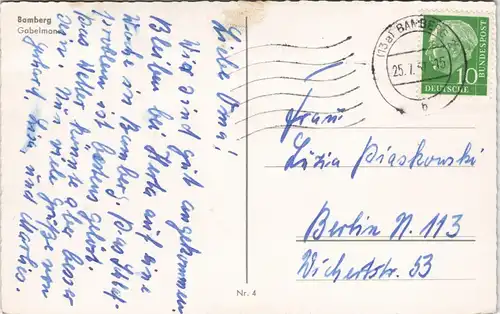 Bamberg
Gabelmann
Liebe Oma!
Wir sind gut angekommen.
Bleiben bei Herta auf eine
Woche in Bamberg. Das Schlaf-
problem ist bestens gelöst.
Das Wetter könnte aber besser
sein. Nun viele Grüße von
Gerhard, und
Nr. 4
(13a) BAMBERG 2
25.7.5
b
10
DEUTSCHE
BUNDESPOST
Frau
Luzia Piaskowski
Berlin N. 113
Wichertstr. 53